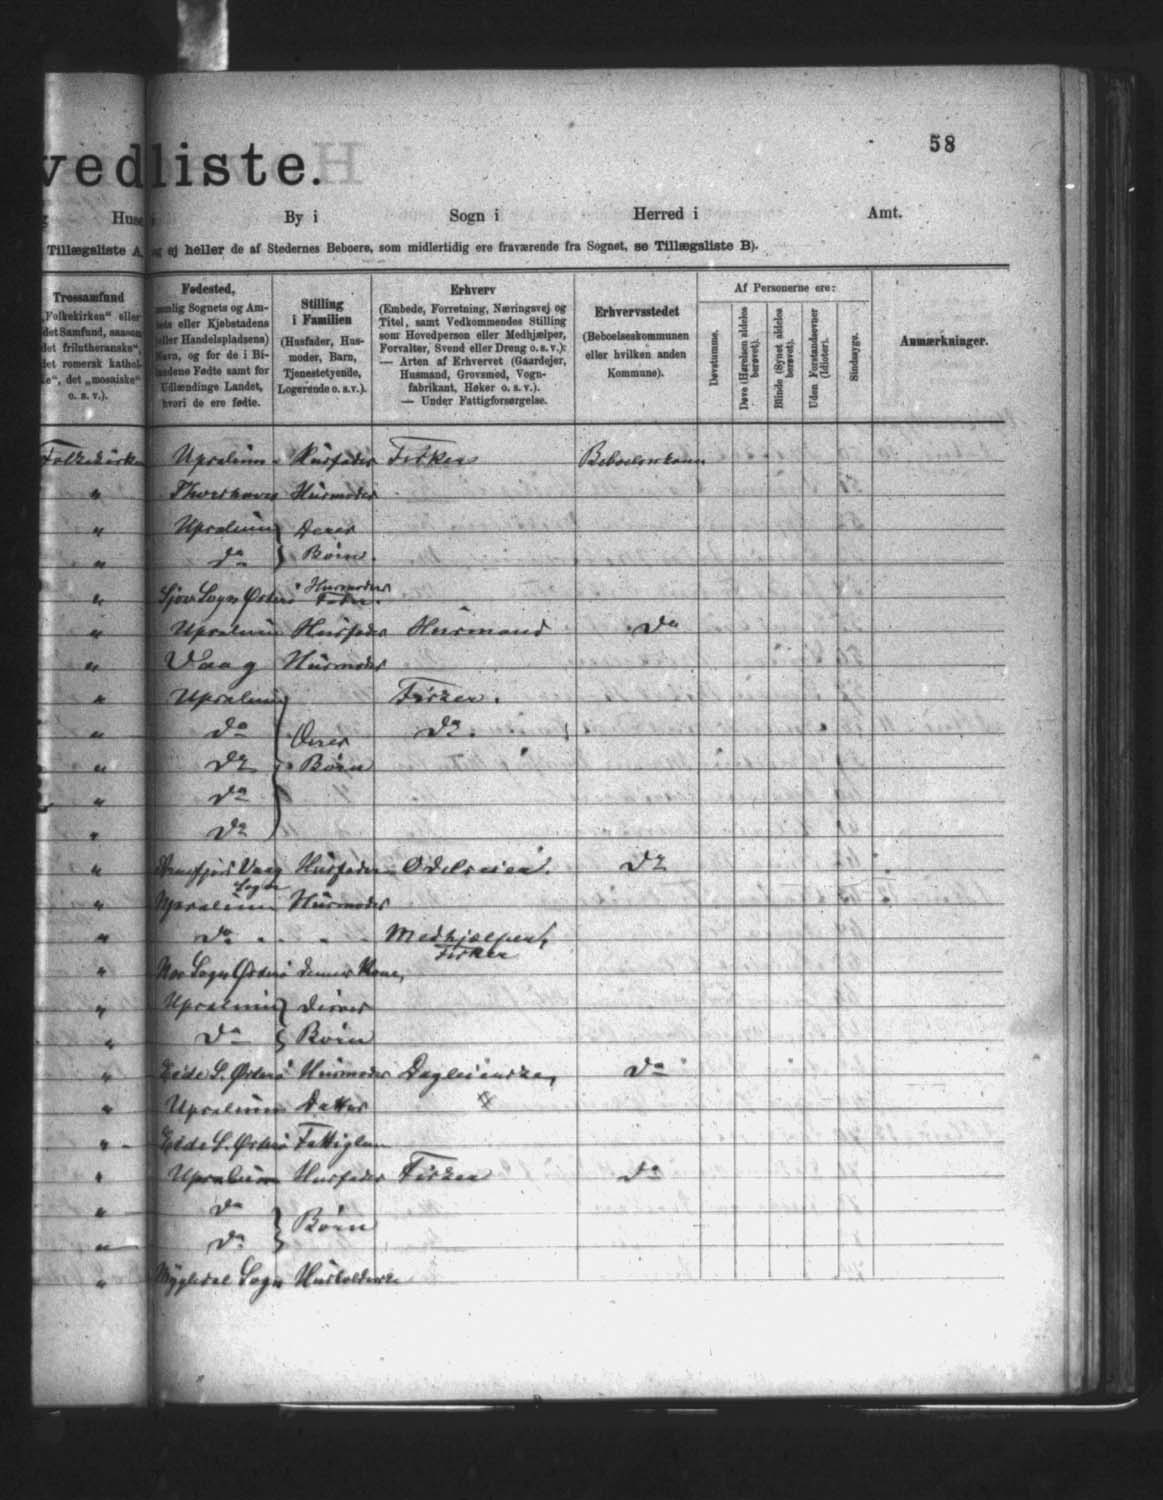 58
vedliste.
Huse i By i Sogn i Herred i Amt.
Tillægsliste A, og ej heller de af Stedernes Beboere, som midlertidig ere fraværende fra Sognet, se Tillægsliste B).
Trossamfund
„Folkekirken“ eller
det Samfund, saasom
det frilutheranske“,
det romersk kathol-
ke“, det „mosaiske“
o. s. v.).
Fødested,
nemlig Sognets og Am-
tets eller Kjøbstadens
(eller Handelspladsens)
Navn, og for de i Bi-
landene Fødte samt for
Udlændinge Landet,
hvori de ere fødte.
Stilling
i Familien
(Husfader, Hus-
moder, Barn,
Tjenestetyende,
Logerende o. s. v.).
Erhverv
(Embede, Forretning, Næringsvej og
Titel, samt Vedkommendes Stilling
som Hovedperson eller Medhjælper,
Forvalter, Svend eller Dreng o. s. v.):
— Arten af Erhvervet (Gaardejer,
Husmand, Grovsmed, Vogn-
fabrikant, Høker o. s. v.).
— Under Fattigforsørgelse.
Erhvervsstedet
(Beboelseskommunen
eller hvilken anden
Kommune).
Af Personerne ere:
Døvstumme.
Døve (Hørelsen aldeles berøvet).
Blinde (Synet aldeles berøvet).
Uden Forstandsevner (Idioter).
Sindssyge.
Anmærkninger.
Folkekirken Upsalium Husfader Fisker Beboelseskomm
" Thorshavn Husmoder
" Upsalium } Deres
" do } Børn.
" Sogn Østerø Husmoders
" Upsalium Husfader Husmand do
" Vaag Husmoder
" Upsalium Fisker.
" do Deres do.
" do Børn
" do
" do
" Vaag Sogn Husfader do
" Upsalium Husmoder
" do " " Medhjælper,
Fisker
" Sogn Østerø Kone,
" Upsalium }
" do } Børn
" Eide S. Østerø Husmoder do
" Upsalium Datter
" Eide S. Østerø
" Upsalium Husfader Fisker do
" do }
" do } Børn
" Sogn Husholderske